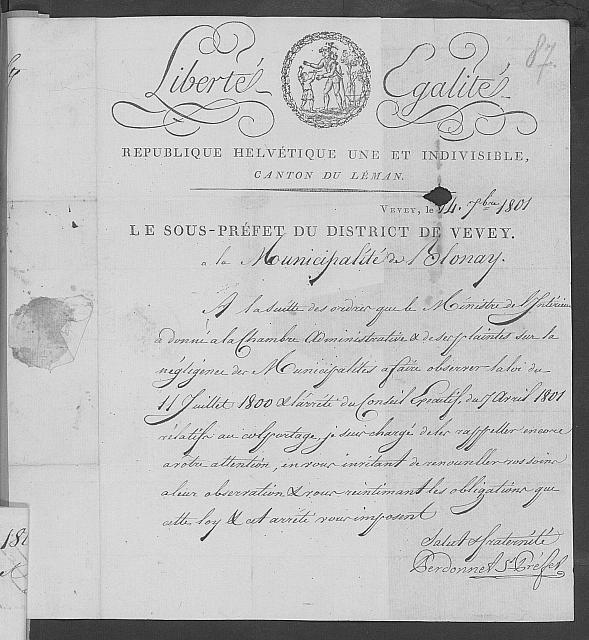 87.
Liberté Egalité
REPUBLIQUE HELVÉTIQUE UNE ET INDIVISIBLE,
CANTON DU LÉMAN.
VEVEY, le 14. 7bre 1801
LE SOUS-PRÉFET DU DISTRICT DE VEVEY.
a la Municipalité de Blonay.
A la suitte des ordres que le Ministre de l'Intérieur
a donné a la Chambre Administrative & de ses plaintes sur la
négligence des Municipalités a faire observer la loi du
11 Juillet 1800 & l'arrêté du Conseil Exécutif du 7 Avril 1801
rélatifs au colportage, je suis chargé de les rappeller encore
a votre attention, en vous invitant de renouveller vos soins
a leur observation & vous reintimant les obligations que
cette loy & cet arrêté vous imposent
Salut & fraternité
Perdonnet S. Préfet